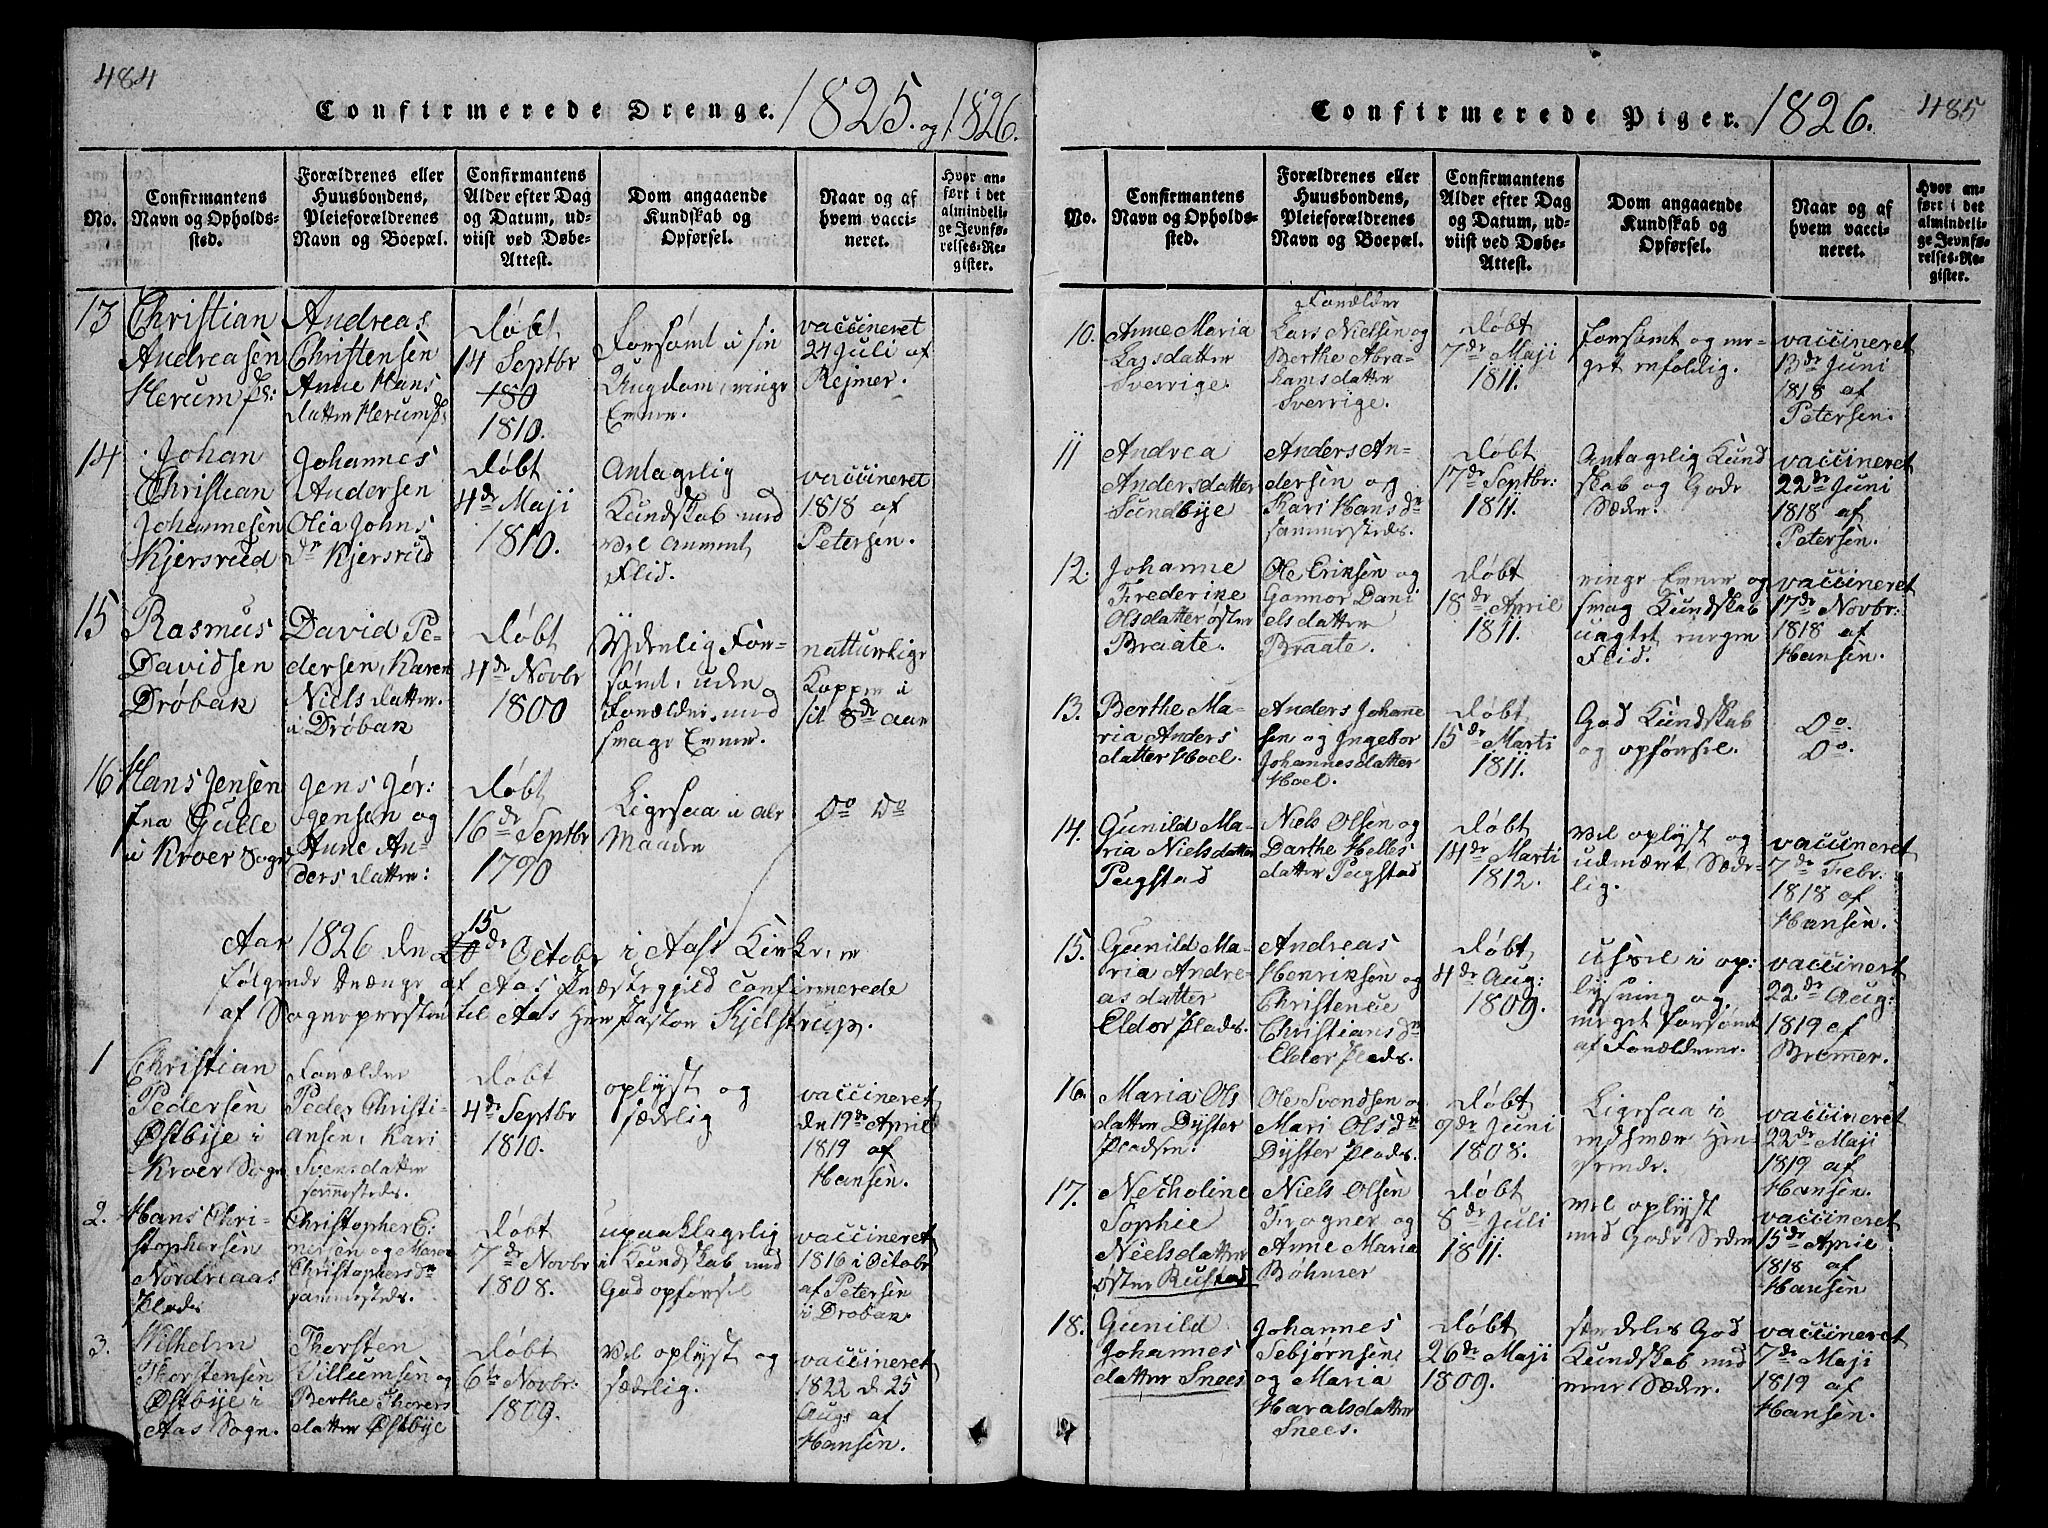 484
Confirmerede Drenge. 1825. og 1826.
No.
Confirmantens
Navn og Opholds-
sted.
Forældrenes eller
Huusbondens,
Pleieforældrenes
Navn og Boepæl.
Confirmantens
Alder efter Dag
og Datum, ud-
viist ved Døbe-
Attest.
Dom angaaende
Kundskab og
Opførsel.
Naar og af
hvem vacci-
neret.
Hvor an-
ført i det
almindeli-
ge Jevnfø-
relses-Re-
gister.
13
Christian
Andreasen
Herum
Andreas
Christensen
Anne Hans
datter Herum
døbt
14 Septbr
180
1810.
Forsømt i sin
Ungdom, ringe
Evner.
vaccineret
24 Juli af
Rejmer.
14
Johan
Christian
Johannesen
Kjersrud
Johannes
Andersen
Olia Johns
dr Kjersrud
døbt
4de Maji
1810.
Antagelig
Kundskab med
vel anvent
Flid.
vaccineret
1818 af
Petersen.
15
Rasmus
Davidsen
Drøbak
David Pe-
dersen, Karen
Niels datter.
i Drøbak
døbt
4de Novbr
1800
Yderlig For-
sømt, uden
Forældre, med
svage Evner.
natturlige
Kopper i
sit 8de aar
16
Hans Jensen
fra Gulle
i Kroer Sogn
Jens Jør:
gensen og
Anne An-
ders datter:
døbt
16de Septbr
1790
Ligesaa i alle
Maader
Do Do
Aar 1826 den 20 15de October i Aas Kirke, er
følgende Drænge af Aas Præstegjeld confirmerede
af Sogneprsten til Aas Herr Pastor Kjelstrup.
1
Christian
Pedersen
Østbye i
Kroer Sogn
Forælder
Peder Christi-
ansen, Kari
Svensdatter
sammesteds.
døbt
4de Septbr
1810.
oplyst og
sædelig
vaccineret
den 19de April
1819 af
Hansen.
2.
Hans Chri-
stophersen
Nordraas
Plads
Christopher E:
nersen og Maren
Christophersdr
sammesteds.
døbt
7de Novbr
1808.
upaaklagelig
i Kundskab med
God opførsel
vaccineret
1816 i Octobr
af Petersen
i Drøbak
3.
Wilhelm
Thorstensen
Østbye i
Aas Sogn.
Thorsten
Villumsen og
Berthe Thores
datter Østbye
døbt
6te Novbr:
1809.
vel oplyst og
sædelig.
vaccineret
1822 d. 25
Augs af
Hansen.
Confirmerede Piger. 1826.
485
No.
Confirmantens
Navn og Opholds-
sted.
Forældrenes eller
Huusbondens,
Pleieforældrenes
Navn og Boepæl.
Confirmantens
Alder efter Dag
og Datum, ud-
viist ved Døbe-
Attest.
Dom angaaende
Kundskab og
Opførsel.
Naar og af
hvem vacci-
neret.
Hvor an-
ført i det
almindeli-
ge Jevnfø-
relses-Re-
gister.
10.
Anne Maria
Larsdatter
Sverrige.
Forælder
Lars Nielsen og
Berthe Abra-
hamsdatter
Sverrige.
døbt
7de Maji
1811.
forsømt og me-
get enfoldig.
vaccineret
13de Juni
1818 af
Petersen.
11
Andrea
Andersdatter
Sundbye
Anders An-
dersen og
Kari Hans dr
sammesteds.
døbt
17de Septbr:
1811.
Antagelig Kund
skab og Gode
Sæder.
vaccineret
22de Juni
1818 af
Petersen.
12.
Johanne
Frederike
Olsdatter øster
Braate
Ole Eriksen og
Gonnor Dani
elsdatter
Braate.
døbt
18de April
1811.
ringe Evner og
svag Kundskab
uagtet megen
Flid.
vaccineret
17de Novbr:
1818 af
Hansen.
13.
Berthe Ma-
ria Anders
datter Hoel.
Anders Johanne
sen og Ingebor
Johannesdatter
Hoel.
døbt
15de Marti
1811.
God Kundskab
og opførsel.
Do.
Do.
14.
Gunild Ma-
ria Nielsdatter
Pugstad
Niels Olsen og
Darthe Helles
datter Pugstad
døbt
14de Marti
1812.
vel oplyst og
udmært Sæde-
lig.
vaccineret
7de Febr:
1818 af
Hansen.
15.
Gunild Ma-
ria Andre-
as datter
Eldor Plads.
Andreas
Henriksen og
Christence
Christians dr
Eldor Plads.
døbt
4de Aug:
1809.
ussel i op:
lysning og
meget forsømt
af Forælderne.
vaccineret
22de Aug:
1819 af
Bremer.
16.
Maria Ols
datter Dyster
Pladsen.
Ole Svendsen og
Mari Ols dr
Dyster Plads.
døbt
9de Juni
1808.
Ligesaa i
endhvær Hen-
seende.
vaccineret
22de Maji
1819 af
Hansen.
17.
Necholine
Sophie
Nielsdatter
øster Rustad
Niels Olsen
Frogner og
Anne Maria
Bøhmer
døbt
8de Juli
1811.
vel oplyst
med Gode Seder
vaccineret
15de April
1818 af
Hansen
18.
Gunild
Johannes
datter Snees
Johannes
Sebjørnsen
og Maria
Haralsdatter
Snees.
døbt
26de Maji
1809.
stedeles God
Kundskab med
Sæder.
vaccineret
7de Maji
1819 af
Hansen.